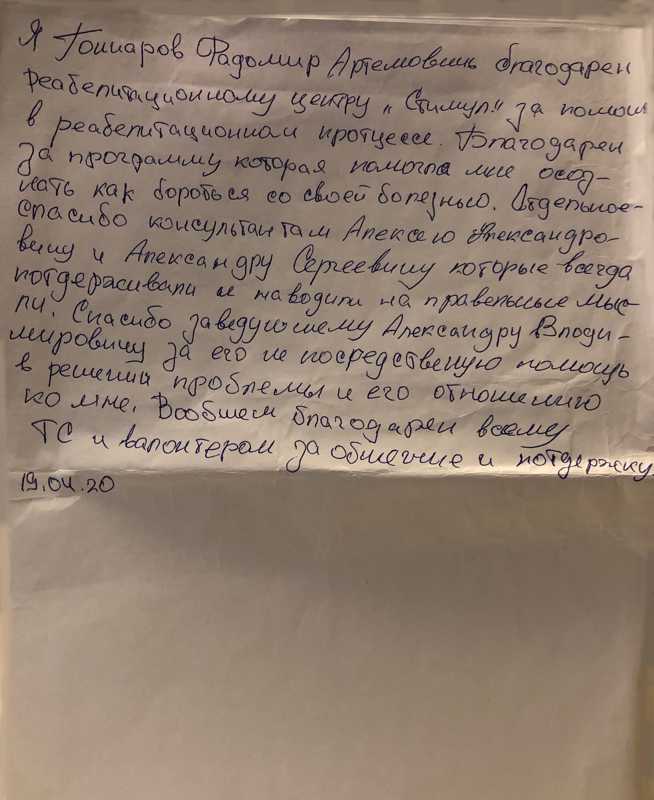 Я Гончаров Радомир Артемовичь благодарен
Реабелитационному центру „Стимул" за помощь
в реабелитационном протцессе. Благодарен
за программу которая помогла мне осоз-
нать как бороться со своей болезнью. Отдельное-
спасибо консультантам Алексею Александро-
вичу и Александру Сергеевичу которые всегда
потдерживали и наводили на правельные мыс-
ли. Спасибо заведующему Александру Влади-
мировичу за его не посредственую помощь
в решении проблемы и его отношению
ко мне. Вообщем благодарен всему
ТС и валонтерам за общение и потдержку
19.04.20